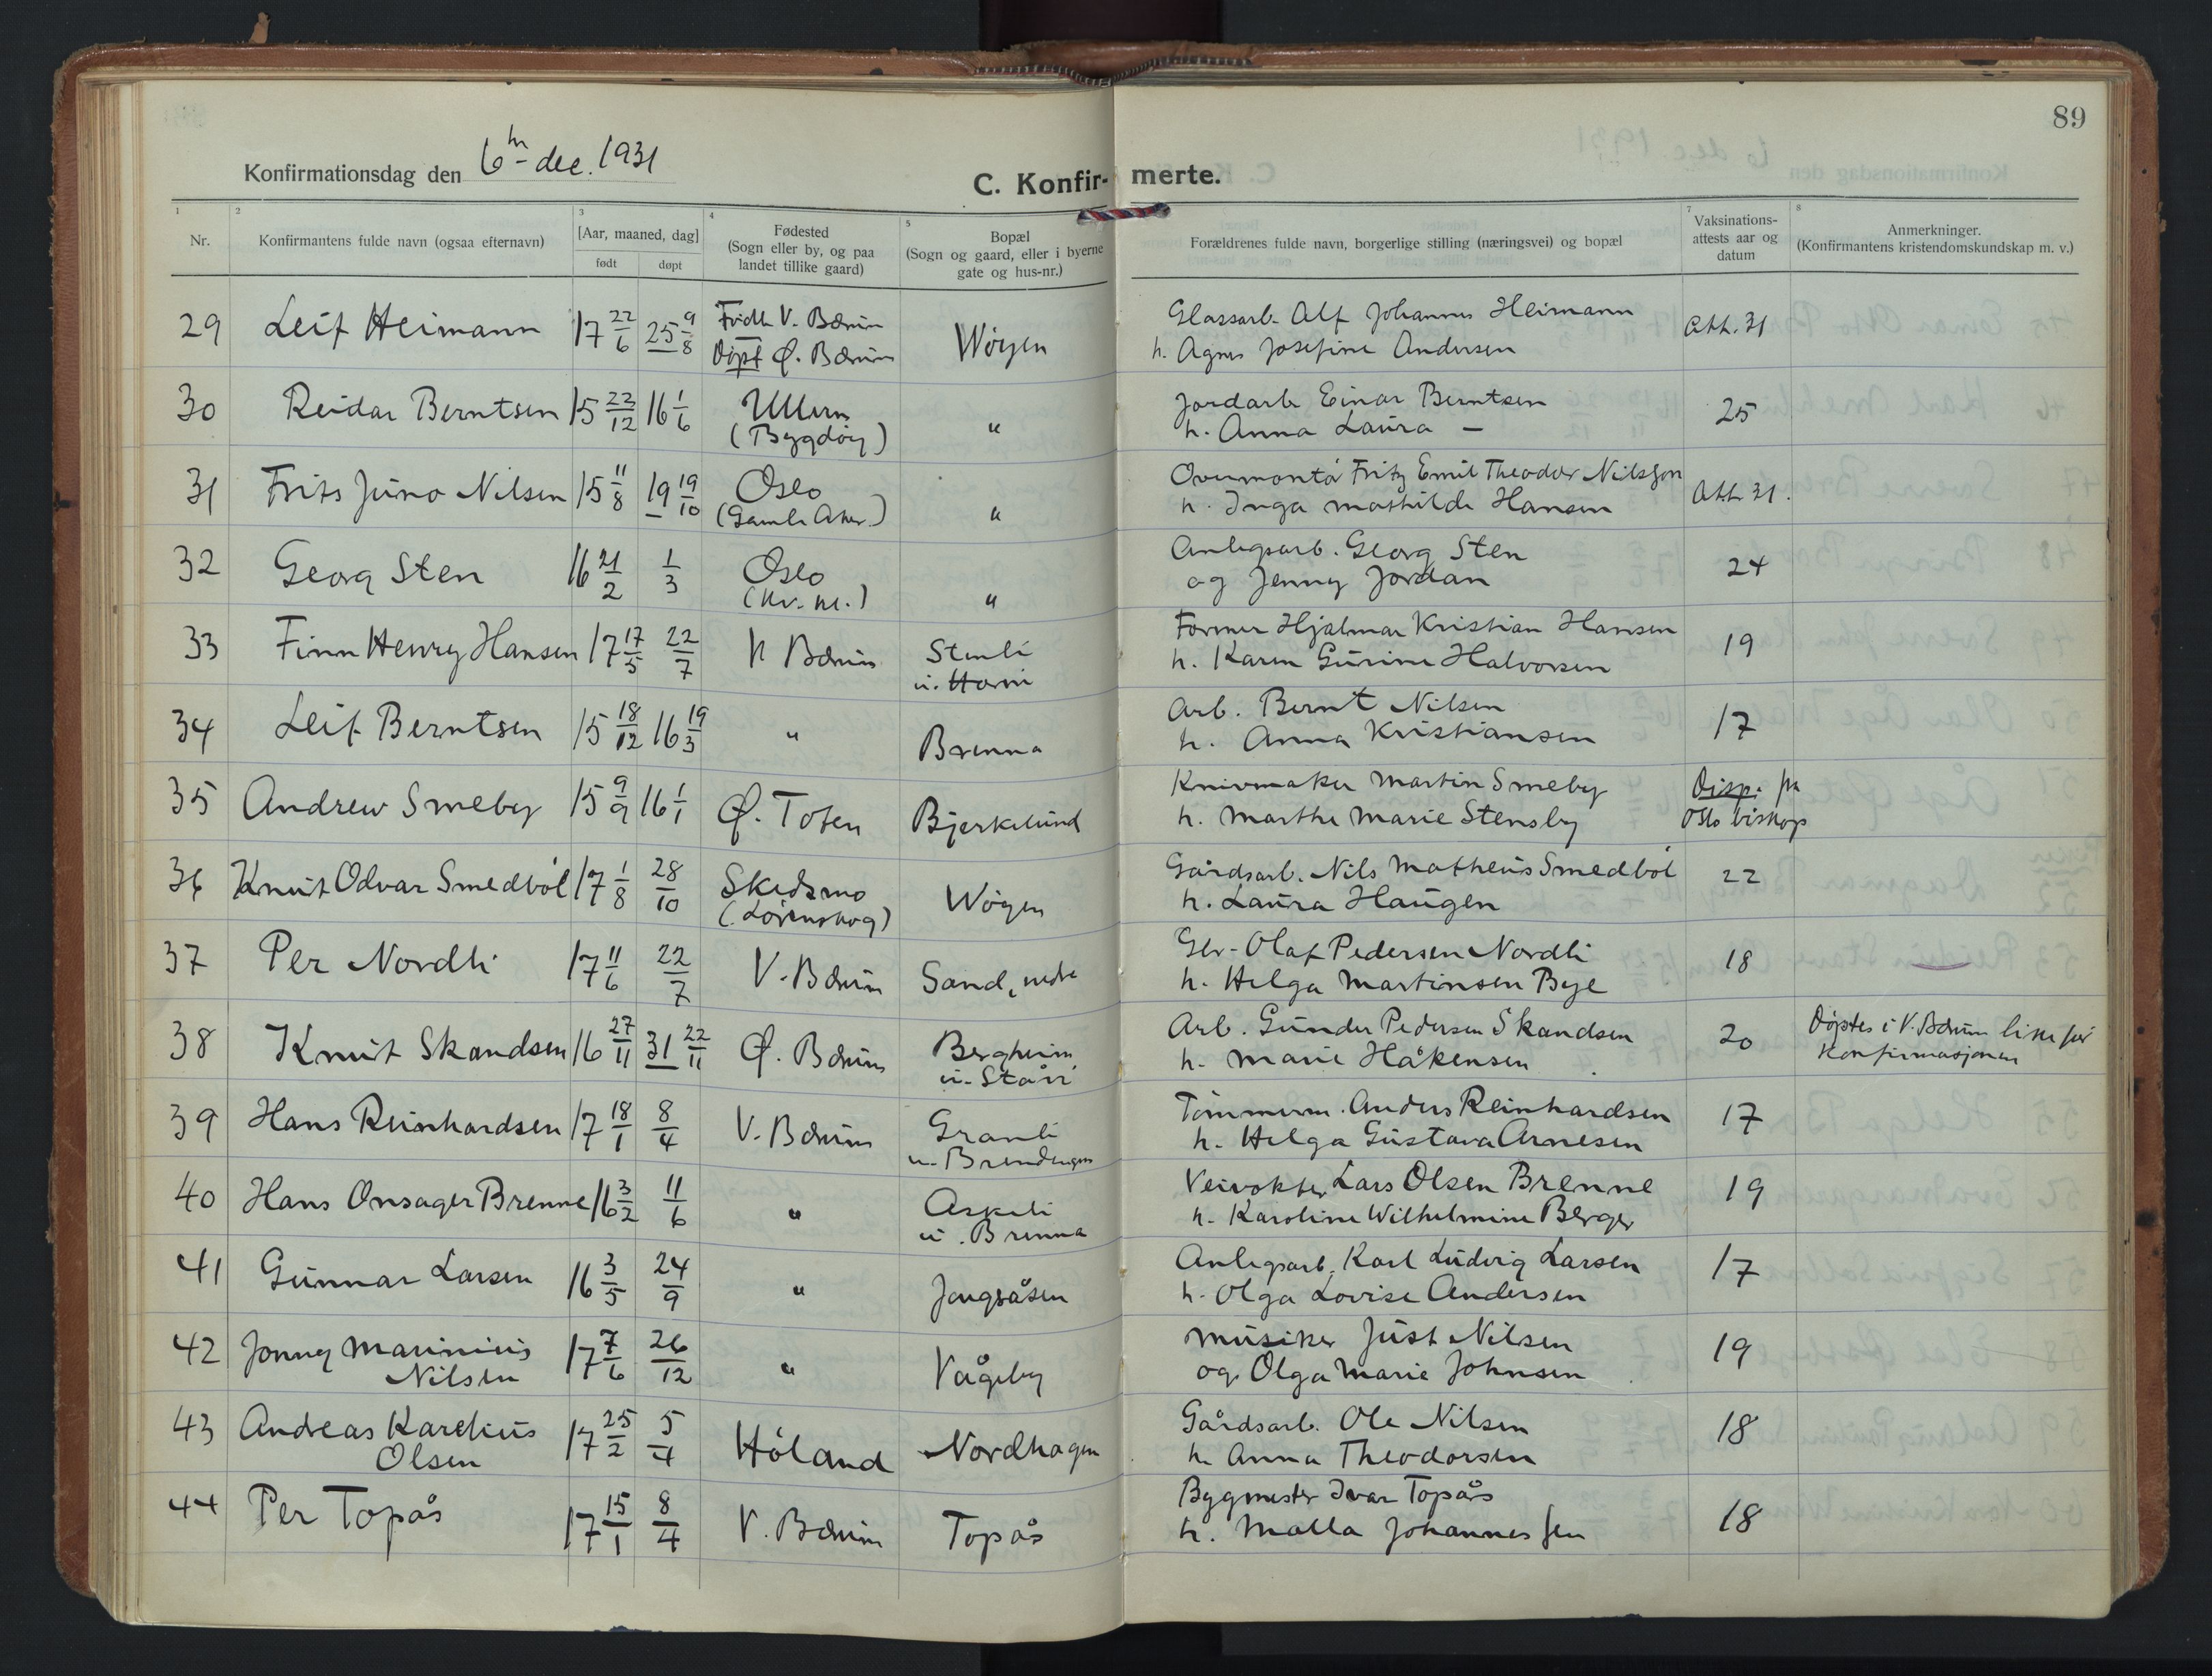 89
Konfirmationsdag den 6te dec. 1931
C. Konfir- merte.
1 2 3 4 5 7 8
Nr. Konfirmantens fulde navn (ogsaa efternavn) [Aar, maaned, dag] født døpt Fødested (Sogn eller by, og paa landet tillike gaard) Bopæl (Sogn og gaard, eller i byerne gate og hus-nr.) Forældrenes fulde navn, borgerlige stilling (næringsvei) og bopæl Vaksinations-attests aar og datum Anmerkninger. (Konfirmantens kristendomskundskap m. v.)
29 Leif Heimann 17 22/6 25 9/8 Født V. Bærum Wøyen Glassarb. Alf Johannes Heimann Att. 31
Døpt Ø. Bærum h. Agnes Josefine Andersen
30 Reidar Berntsen 15 22/12 16 1/6 Ullern " Jordarb Einar Berntsen 25
(Bygdøy) h. Anna Laura —
31 Frits Juno Nilsen 15 11/8 19 19/10 Oslo " Overmontø Fritz Emil Theodor Nilsson Att. 31.
(Gamle Aker.) h. Inga Mathilde Hansen
32 Georg Sten 16 21/2 1/3 Oslo " Anlegsarb. Georg Sten 24
(Kv. kl.) og Jenny Jordan
33 Finn Henry Hansen 17 17/5 22/7 V Bærum Stenli Former Hjalmar Kristian Hansen 19
u. Horni h. Karen Gurine Halvorsen
34 Leif Berntsen 15 18/12 16 19/3 " Brenna Arb. Bernt Nilsen 17
h. Anna Kristiansen
35 Andrew Smeby 15 9/9 16 1/1 Ø. Toten Bjerkelund Knivmaker Martin Smeby Disp. fra
h. Marthe Marie Stensby Oslo biskop
36 Knut Odvar Smedbøl 17 1/8 28/10 Skedsmo Wøyen Gårdsarb. Nils Matheus Smedbøl 22
(Lørenskog) h. Laura Haugen
37 Per Nordli 17 11/6 22/7 V. Bærum Sand, nedre Olaf Pedersen Nordli 18
h. Helga Martinsen Bye
38 Knut Skandsen 16 27/11 31 22/11 Ø. Bærum Bergheim Arb. Gunder Pedersen Skandsen 20 Døptes i V. Bærum like før
u. Stavi h. Marie Håkensen konfirmasjonen
39 Hans Reinhardsen 17 18/1 8/4 V. Bærum Granli Tømmerm. Anders Reinhardsen 17
u. Brendengen h. Helga Gustava Arnesen
40 Hans Onsager Brenne 16 3/2 11/6 " Askeli Veivokter Lars Olsen Brenne 19
u. Brenna h. Karoline Wilhelmine Berger
41 Gunnar Larsen 16 3/5 24/9 " Jongsåsen Anlegsarb. Karl Ludvig Larsen 17
h. Olga Lovise Andersen
42 Jonny Marinius 17 7/6 26/12 " Vågeby Musiker Just Nilsen 19
Nilsen og Olga Marie Johnsen
43 Andreas Karelius 17 25/2 5/4 Høland Nordhagen Gårdsarb. Ole Nilsen 18
Olsen h. Anna Theodorsen
44 Per Topås 17 15/1 8/4 V. Bærum Topås Bygmester Ivar Topås 18
h. Malla Johannessen